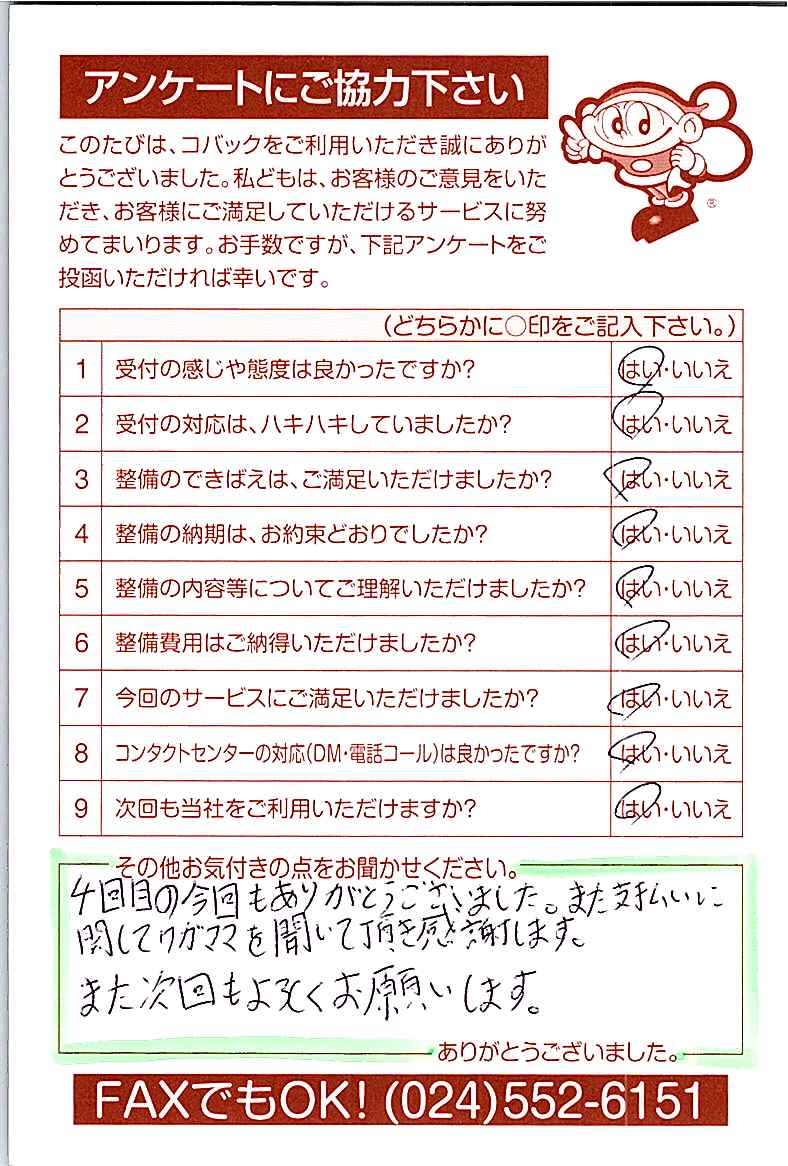 アンケートにご協力下さい
このたびは、コバックをご利用いただき誠にありが
とうございました。私どもは、お客様のご意見をいた
だき、お客様にご満足していただけるサービスに努
めてまいります。お手数ですが、下記アンケートをご
投函いただければ幸いです。
®
(どちらかに○印をご記入下さい。)
1 受付の感じや態度は良かったですか? はい・いいえ
2 受付の対応は、ハキハキしていましたか? はい・いいえ
3 整備のできばえは、ご満足いただけましたか? はい・いいえ
4 整備の納期は、お約束どおりでしたか? はい・いいえ
5 整備の内容等についてご理解いただけましたか? はい・いいえ
6 整備費用はご納得いただけましたか? はい・いいえ
7 今回のサービスにご満足いただけましたか? はい・いいえ
8 コンタクトセンターの対応(DM・電話コール)は良かったですか? はい・いいえ
9 次回も当社をご利用いただけますか? はい・いいえ
その他お気付きの点をお聞かせください。
4回目の今回もありがとうございました。また支払いに
関してワガママを聞いて頂き感謝します。
また次回もよろしくお願いします。
ありがとうございました。
FAXでもOK! (024)552-6151